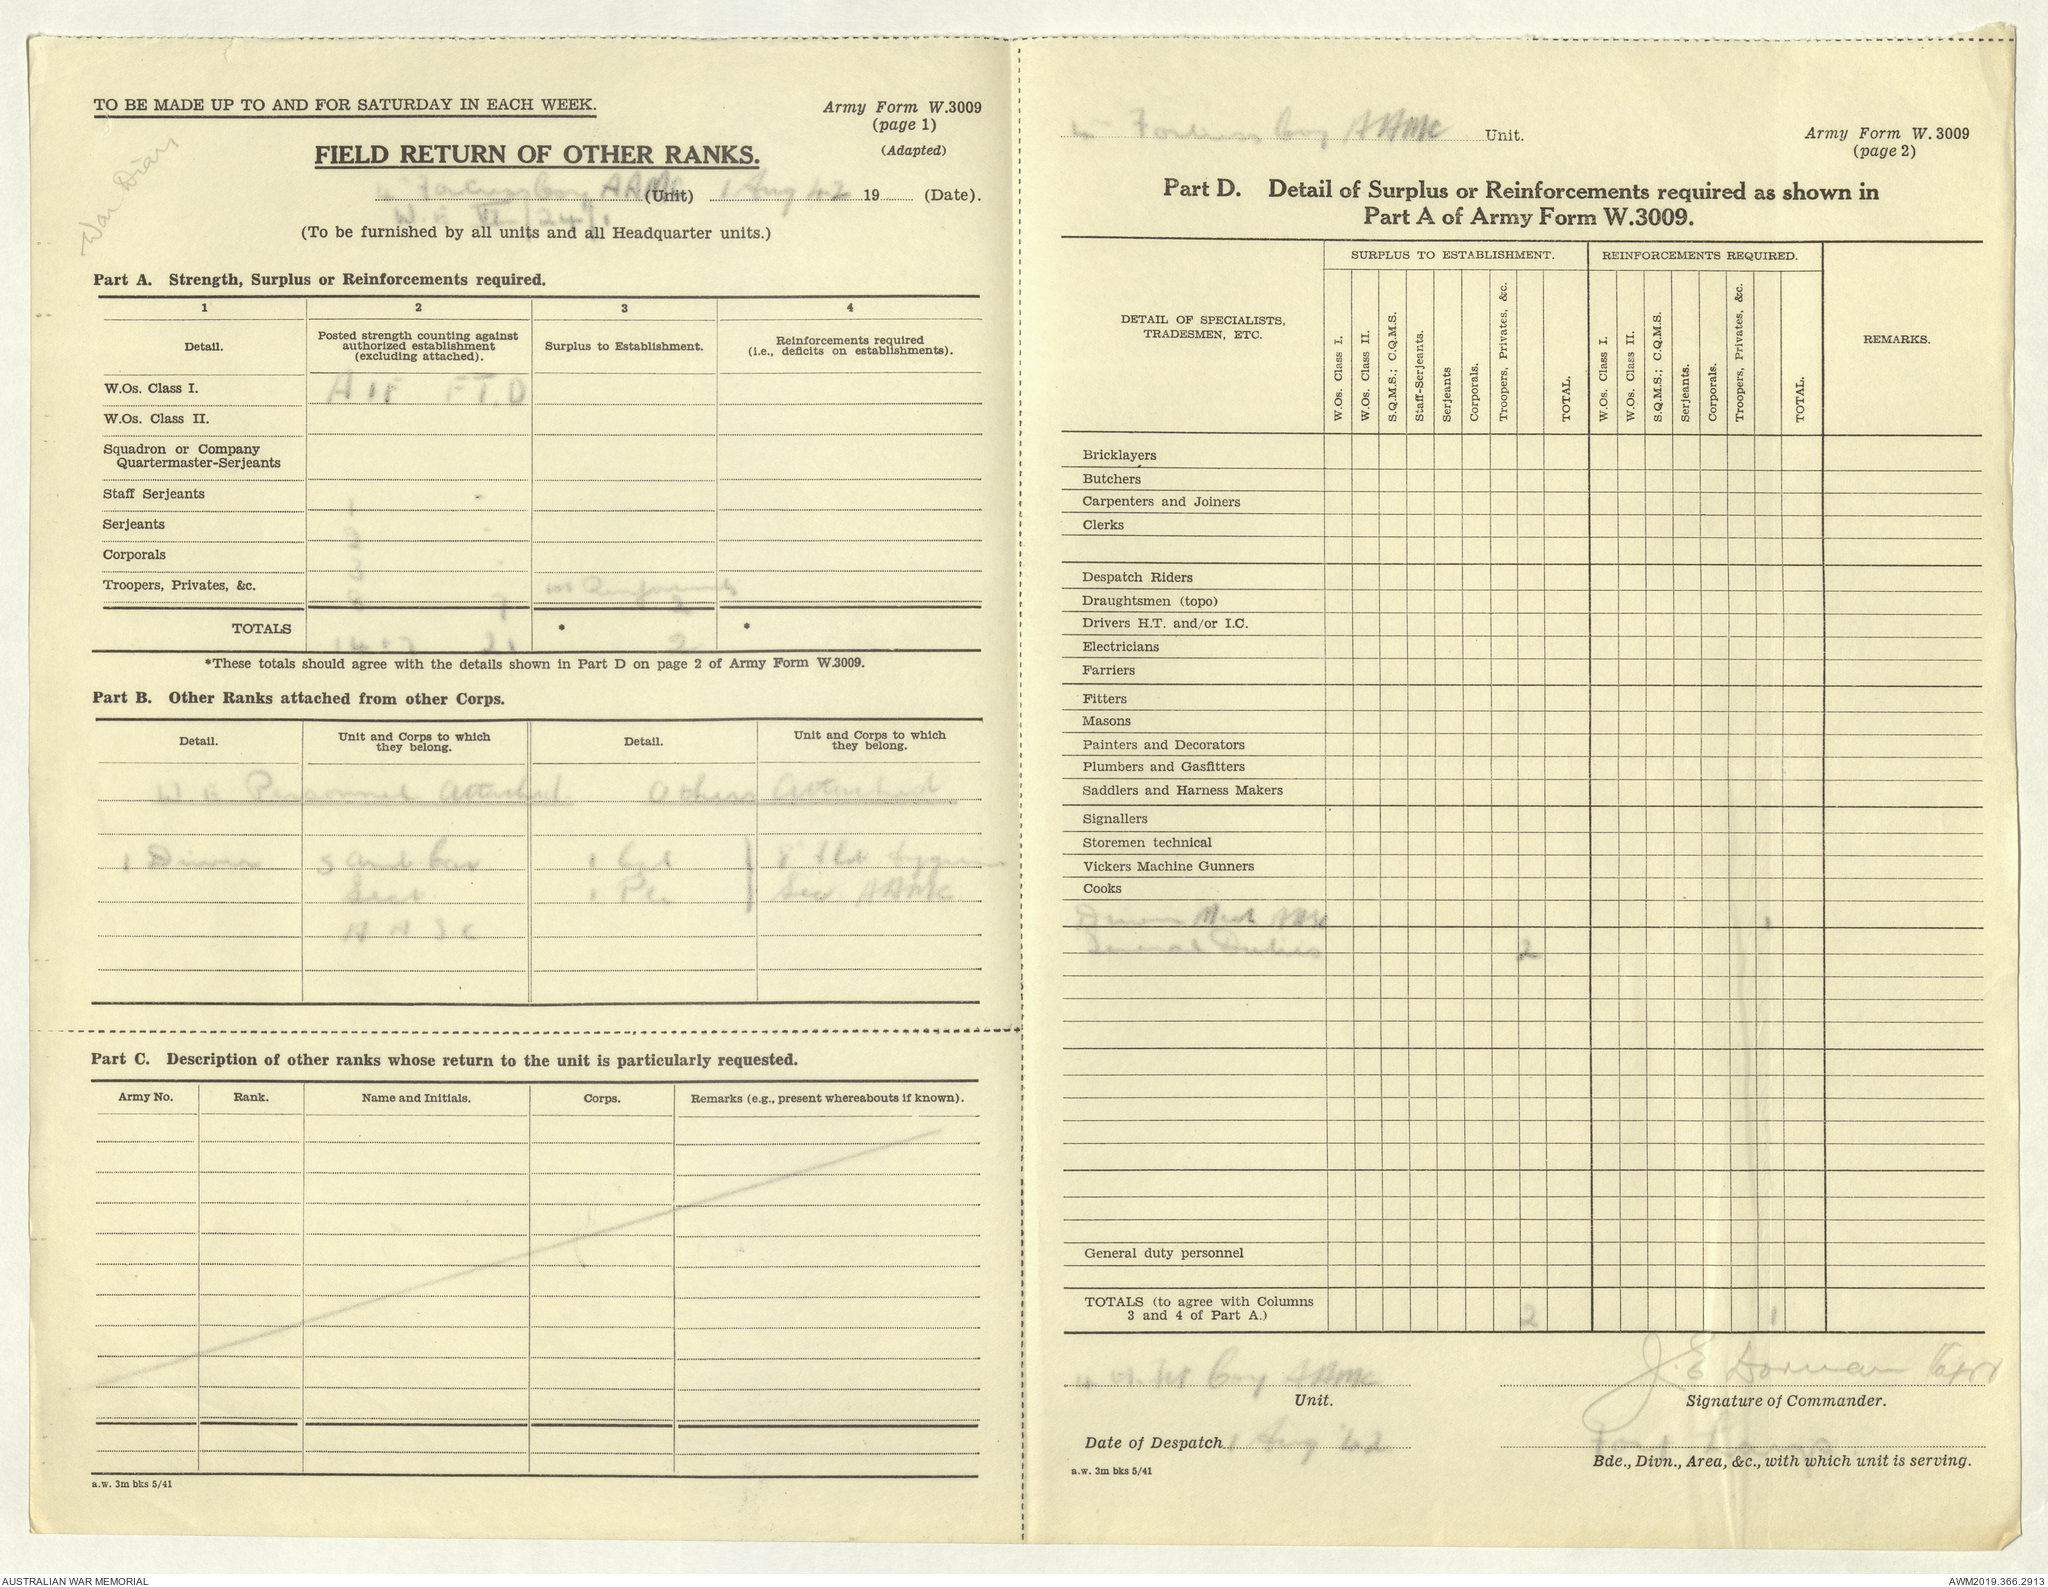 TO BE MADE UP TO AND FOR SATURDAY IN EACH WEEK.
Army Form W.3009
(page 1)
(Adapted)
War Diary
FIELD RETURN OF OTHER RANKS.
4 Fortress Coy AAMC (Unit) 1 Aug 42 19 (Date).
W.E VI/24/1
(To be furnished by all units and all Headquarter units.)
Part A. Strength, Surplus or Reinforcements required.
1 2 3 4
Detail.
Posted strength counting against authorized establishment (excluding attached).
Surplus to Establishment.
Reinforcements required (i.e., deficits on establishments).
W.Os. Class I. AIF FTD
W.Os. Class II.
Squadron or Company
Quartermaster-Serjeants
Staff Serjeants 1 -
Serjeants -
Corporals 3 -
Troopers, Privates, &c. 8 7 Reinforcements 2
TOTALS * 2 *
*These totals should agree with the details shown in Part D on page 2 of Army Form W.3009.
Part B. Other Ranks attached from other Corps.
Detail.
Unit and Corps to which they belong.
Detail.
Unit and Corps to which they belong.
W E Personnel Attached Others Attached
1 Driver 5 Amb Car 1 Cpl 8 Fld Hygiene
Sect 1 Pte Sec AAMC
AASC
Part C. Description of other ranks whose return to the unit is particularly requested.
Army No. Rank. Name and Initials. Corps. Remarks (e.g., present whereabouts if known).
a.w. 3m bks 5/41
4 Fortress Coy AAMC Unit.
Army Form W. 3009
(page 2)
Part D. Detail of Surplus or Reinforcements required as shown in
Part A of Army Form W.3009.
DETAIL OF SPECIALISTS,
TRADESMEN, ETC.
SURPLUS TO ESTABLISHMENT.
W.Os. Class I.
W.Os. Class II.
S.Q.M.S.; C.Q.M.S.
Staff-Serjeants.
Serjeants
Corporals.
Troopers, Privates, &c.
TOTAL.
REINFORCEMENTS REQUIRED.
W.Os. Class I.
W.Os. Class II.
S.Q.M.S.; C.Q.M.S.
Serjeants.
Corporals.
Troopers, Privates, &c.
TOTAL.
REMARKS.
Bricklayers
Butchers
Carpenters and Joiners
Clerks
Despatch Riders
Draughtsmen (topo)
Drivers H.T. and/or I.C.
Electricians
Farriers
Fitters
Masons
Painters and Decorators
Plumbers and Gasfitters
Saddlers and Harness Makers
Signallers
Storemen technical
Vickers Machine Gunners
Cooks
Driver Mech 1
General Duties 2
General duty personnel
TOTALS (to agree with Columns
3 and 4 of Part A.) 2 1
Coy AAMC
Unit.
J. E Dorman Capt
Signature of Commander.
Date of Despatch 1 Aug '42
Bde., Divn., Area, &c., with which unit is serving.
a.w. 3m bks 5/41
AUSTRALIAN WAR MEMORIAL
AWM2019.366.2913